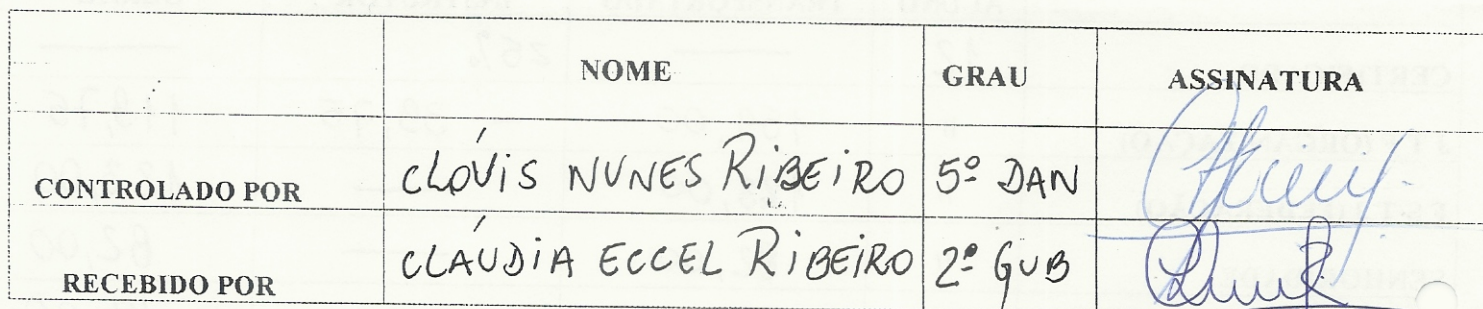 NOME GRAU ASSINATURA
CONTROLADO POR CLÓVIS NUNES RIBEIRO 5º DAN
RECEBIDO POR CLÁUDIA ECCEL RIBEIRO 2º GUB